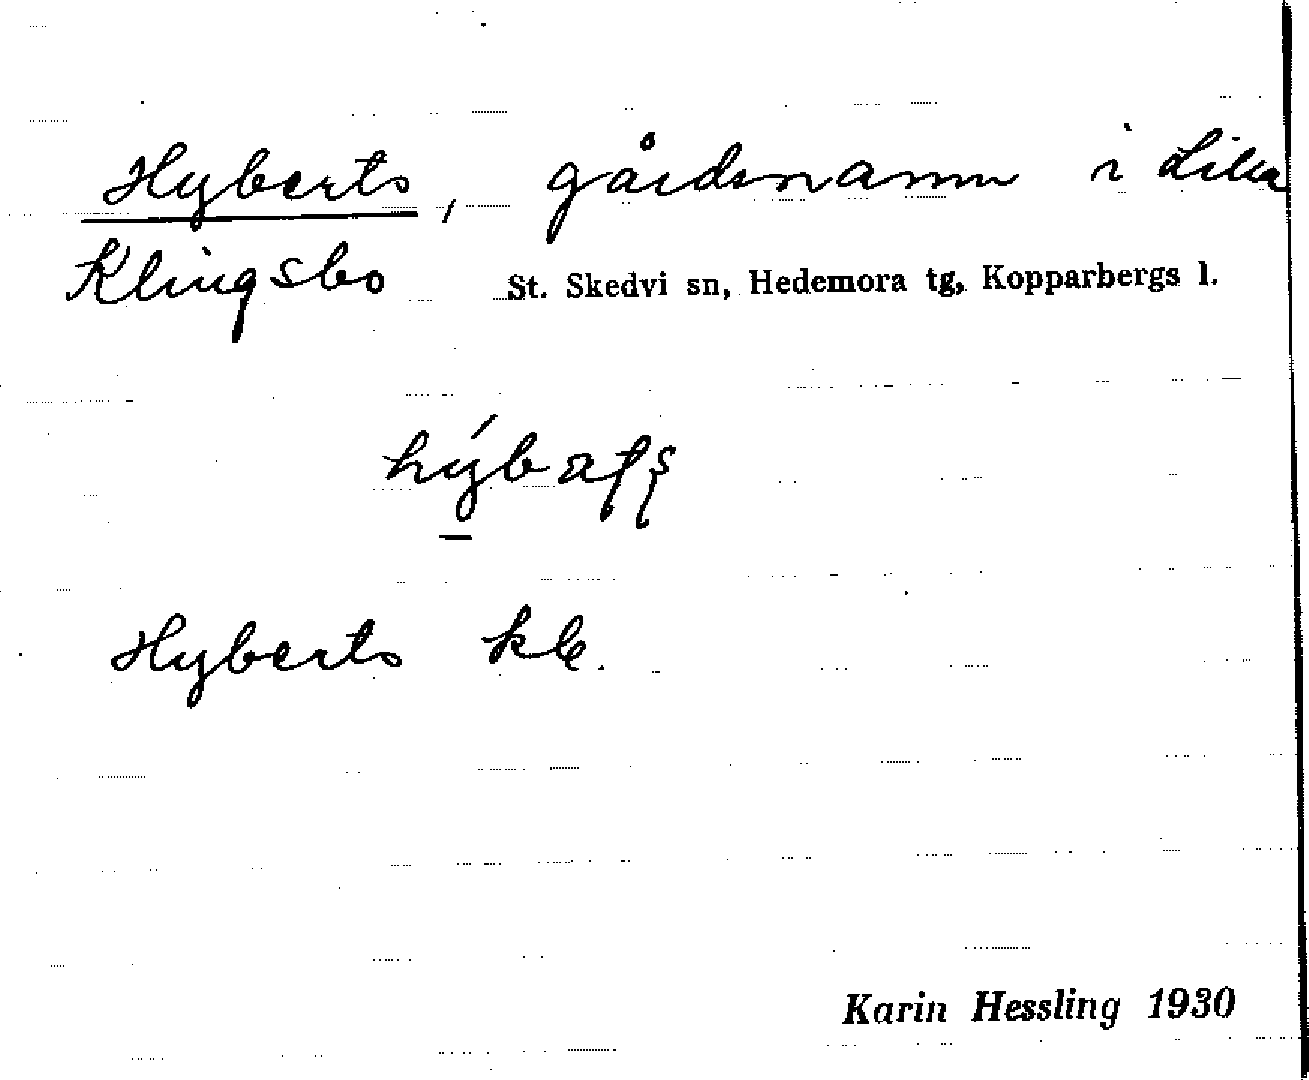 Hyberts, gårdsnamn i Lilla
Klingsbo St. Skedvi sn, Hedemora tg, Kopparbergs l.
Hyberts kb.
Karin Hessling 1930